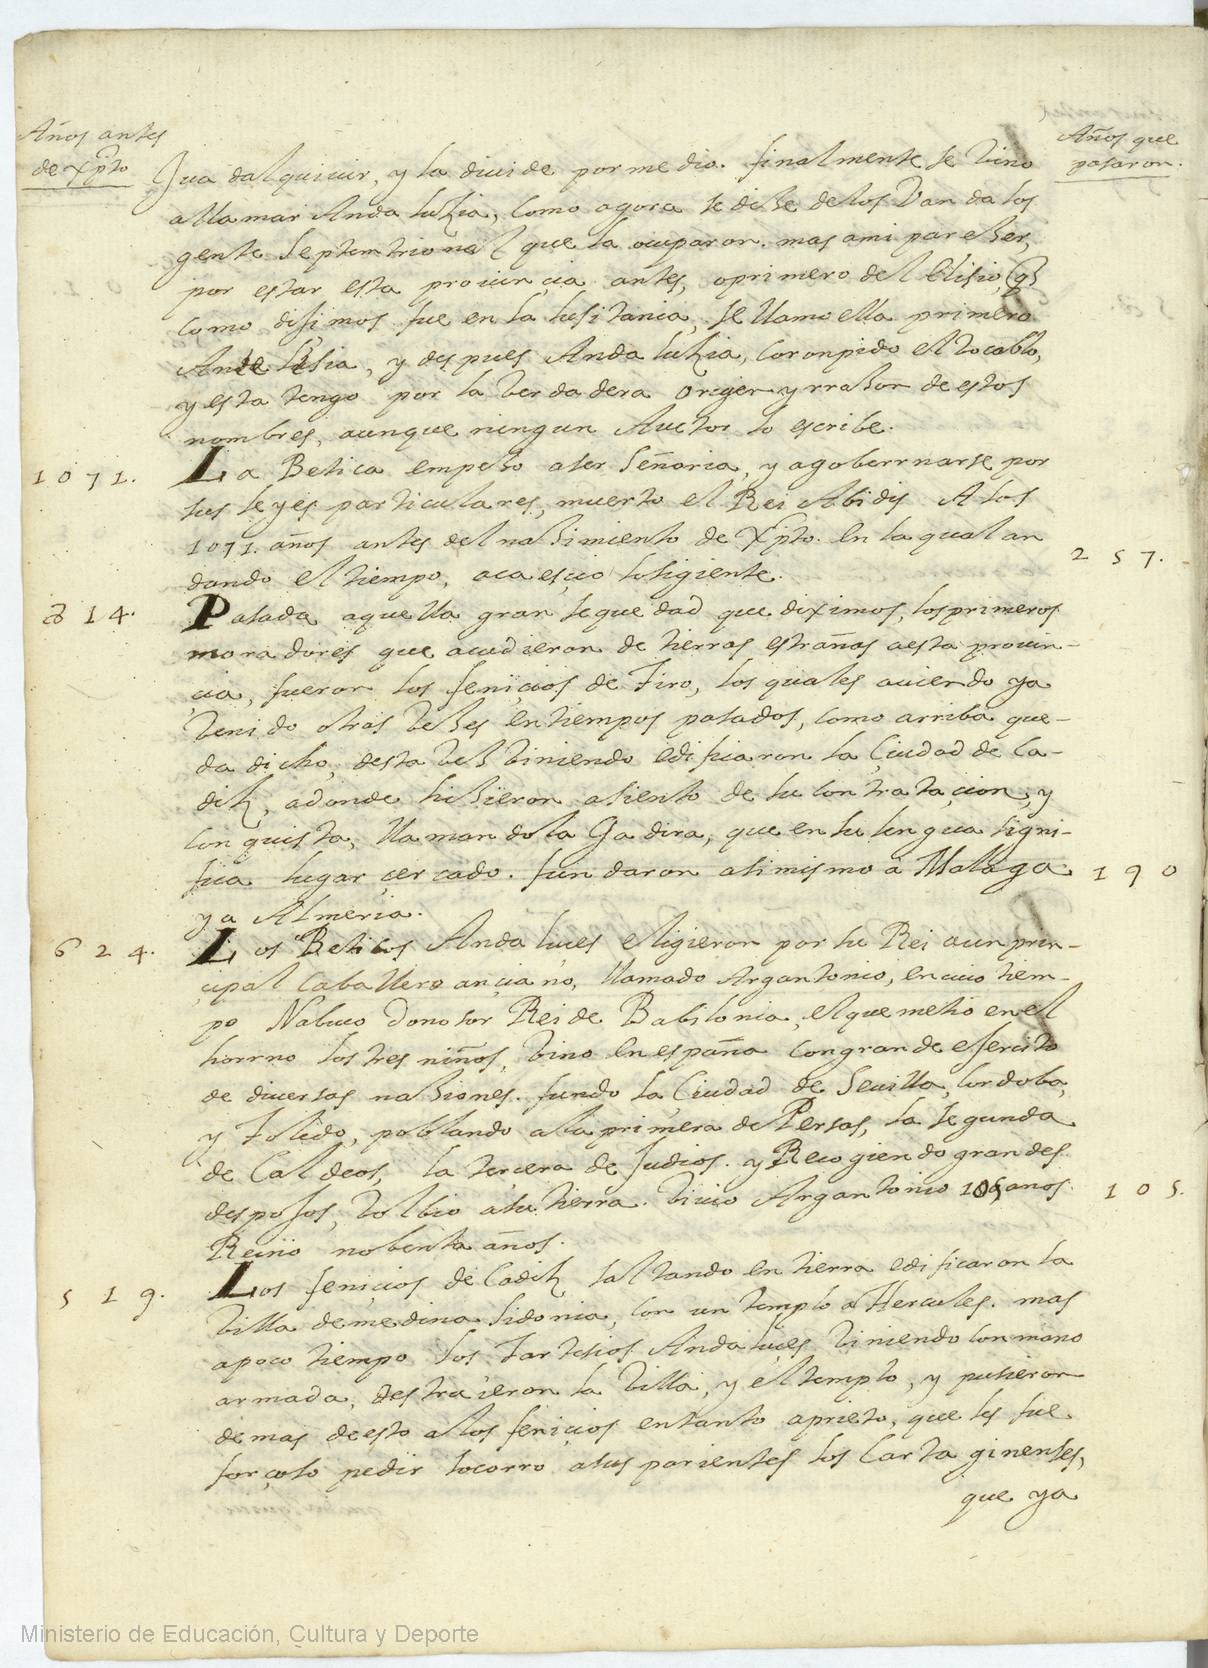 Años antes
de Xpto
Años que
pasaron.
Guadalquiuir, y la diuide por medio. finalmente se vino
allamar Andaluzia, como agora se dize de los Vandalos
gente septentrional que la ocuparon. mas ami pareszer,
por estar esta prouinçia antes, o primero del Elisio, q̃
como diximos fue en la lusitania, se llamo ella primero
Ante Lisia, y despues Andaluzia, coronpido el vocablo,
y esta tengo por la verdadera origen y rrazon de estos
nombres, aunque ningun Auctor lo escribe.
1071.
La Betica empeso aser señoria, y agoberrnarse por
sus leyes particulares, muerto el Rei Abidis A los
1071. años antes del nasimiento de Xpto. En la qual an
257.
dando el tiempo, acaesçio losigiente.
814.
Pasada aquella gran sequedad que diximos, los primeros
moradores que acudieron de tierras estrañas aesta prouin-
çia, fueron los feniçios de Tiro, los quales auiendo ya
venido otras veses en tiempos pasados, como arriba que-
da dicho, desta vez viniendo edificaron la Çiudad de Ca-
diz, adonde hizieron asiento de su contrataçion, y
conquista, llamandola Gadira, que en su lengua signi-
fica lugar çercado. fundaron asimismo a Malaga
190
y a Almeria.
624.
Los Beticos Andaluçes eligieron por su Rei aun prin-
çipal caballero ançiano, llamado Argantonio, en cuio tiem-
po Nabuco donosor Rei de Babilonia, el que metio en el
horrno los tres niños, vino en españa con grande exercito
de diuersas nasiones. fundo la Çiudad de Seuilla, Cordoba,
y Toledo, poblando ala primera de Persas, la segunda
de Caldeos, la tercera de Judios. y Recogiendo grandes
despojos, volbio asu tierra. viuio Argantonio 105 anos.
105.
Reino nobenta años.
519.
Los feniçios de Cadiz saltando en tierra edificaron la
villa de medina sidonia, con un templo a Hercules. mas
apoco tiempo los Tartesios Andaluçes viniendo con mano
armada, destruieron la villa, y el templo, y pusieron
demas de esto alos feniçios en tanto aprieto, que les fue
forçoso pedir socorro asus parientes los Cartaginenses,
que ya
Ministerio de Educación, Cultura y Deporte